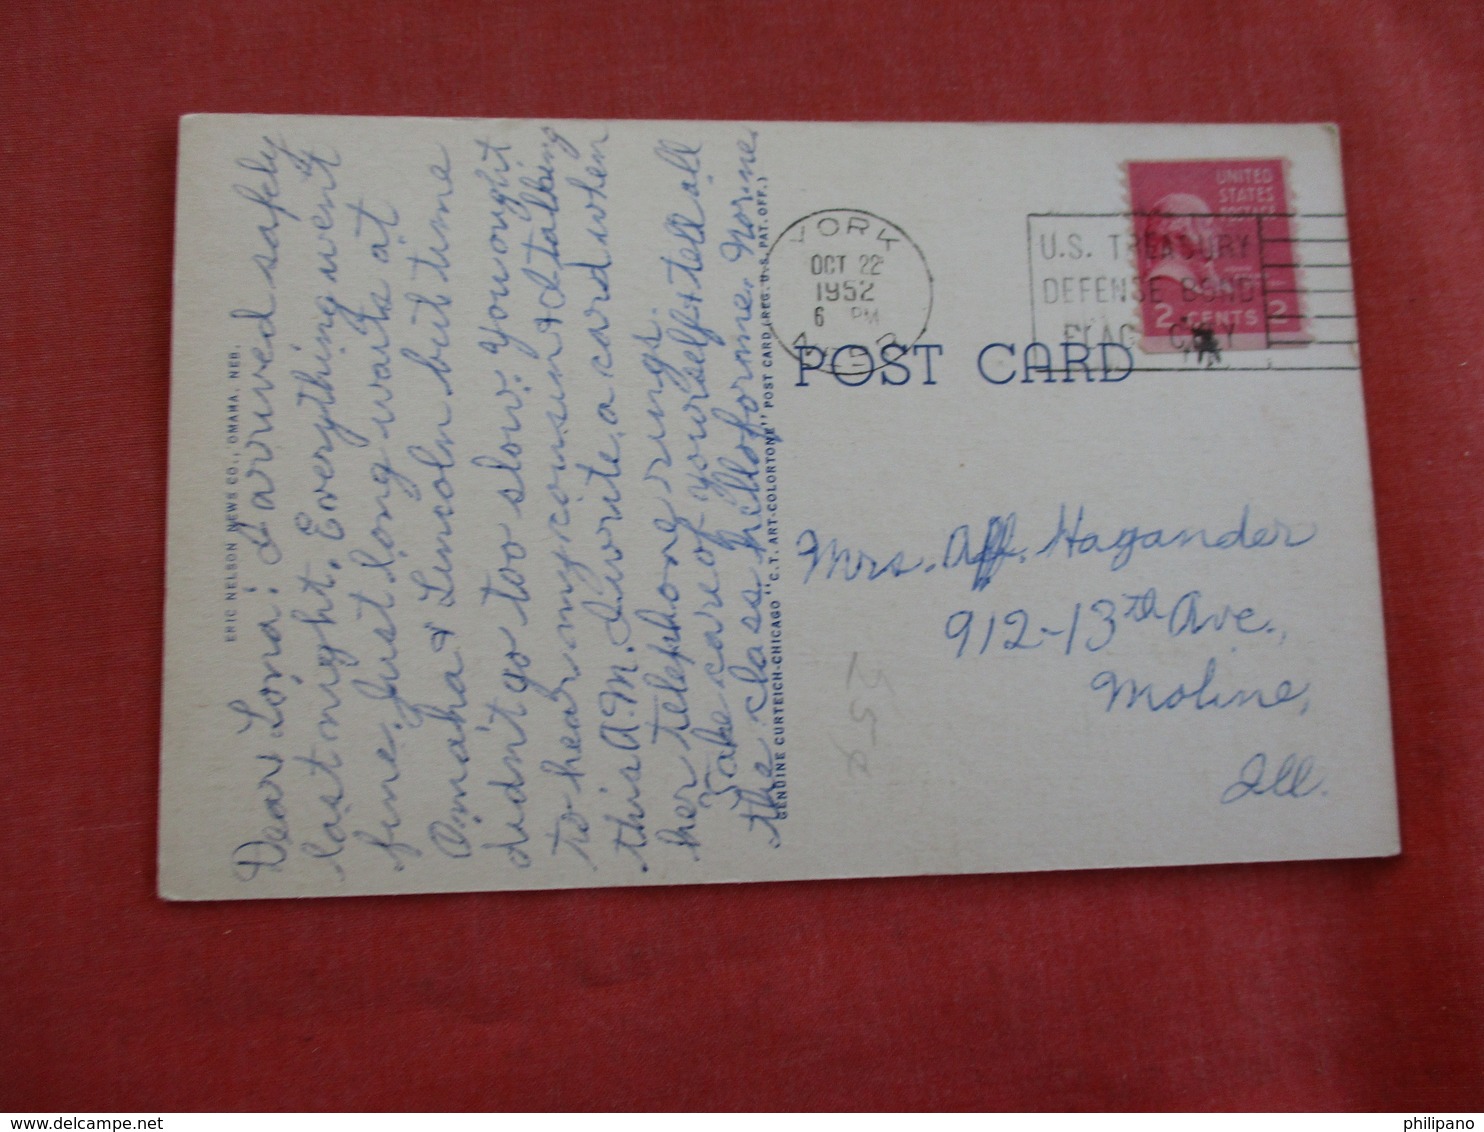 ERIC NELSON NEWS CO., OMAHA, NEB.
Dear Lona: I arrived safely
last night. Everything went
fine. Just long waits at
Omaha & Lincoln but time
didn't go too slow. You ought
to hear my cousin & I talking
this A.M. I write a card when
her telephone rings.
Take care of yourself & tell all
the class hello for me. Norine
GENUINE CURTEICH-CHICAGO "C.T. ART-COLORTONE" POST CARD (REG. U.S. PAT. OFF.)
YORK
OCT 22
1952
6 PM
U.S. TREASURY
DEFENSE BOND
FLAG CITY
UNITED
STATES
POSTAGE
2 CENTS 2
POST CARD
Mrs. Aff. Hagander
912-13th Ave.,
Moline,
Ill.
philipano
delcampe.net